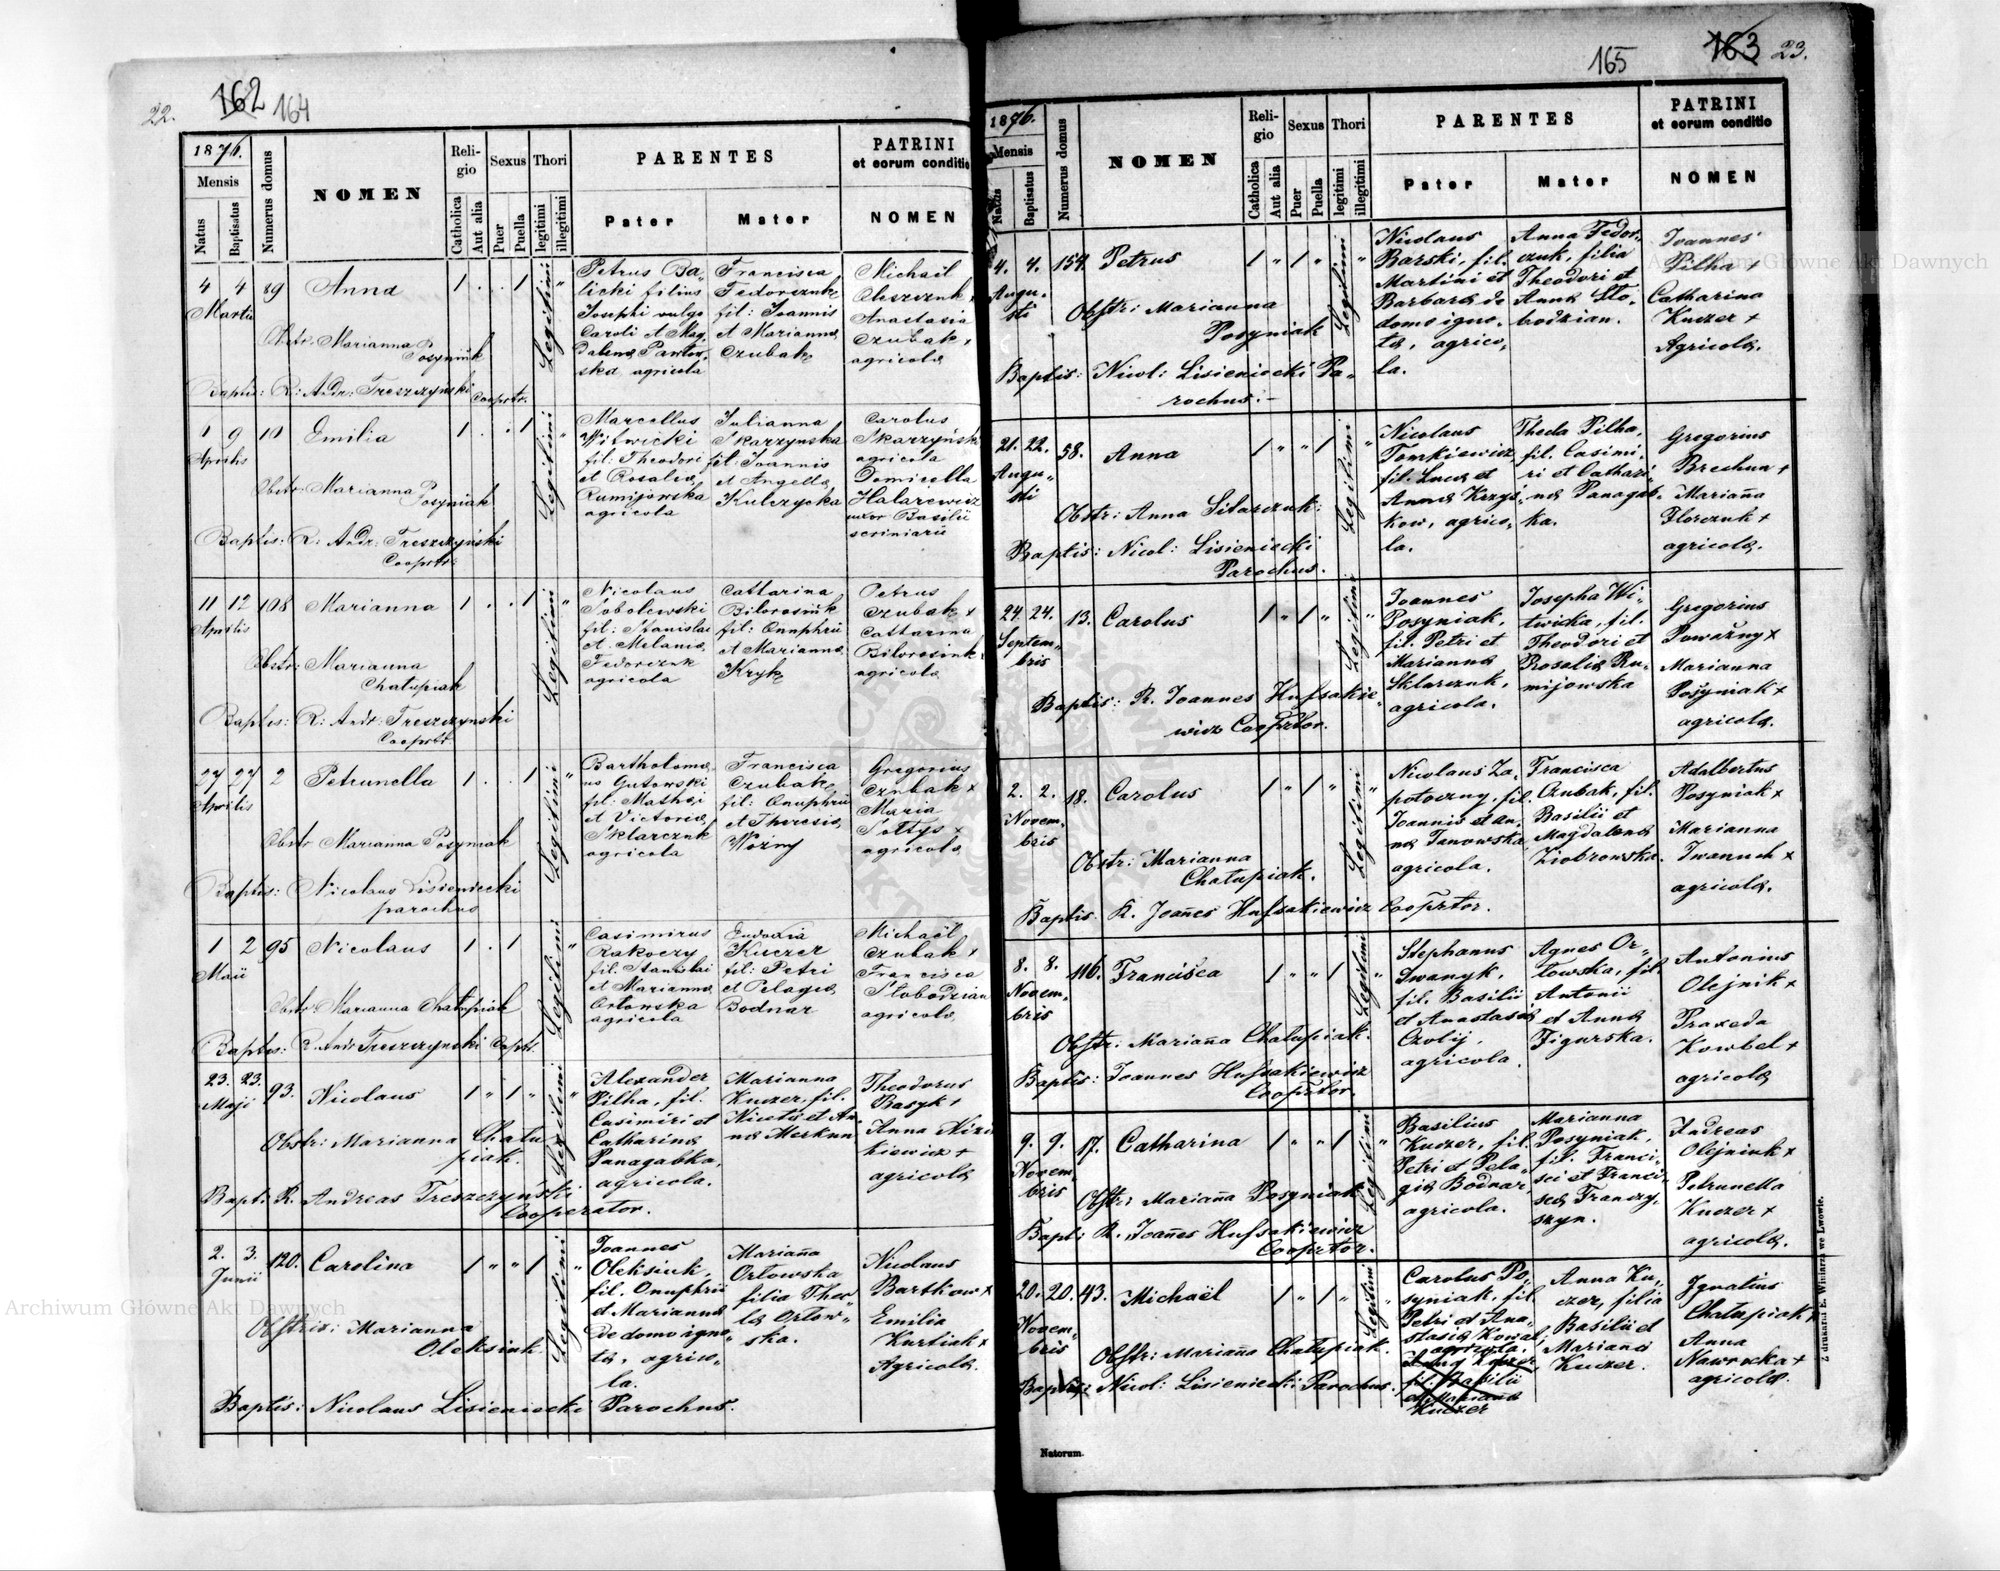 22.
162 164
1876.
Mensis
Natus
Baptisatus
Numerus domus
NOMEN
Religio
Catholica
Aut alia
Sexus
Puer
Puella
Thori
legitimi
illegitimi
PARENTES
Pater
Mater
PATRINI
et eorum conditio
NOMEN
4 4 89 Anna 1 . . 1 Legitimi "
Martii
Obstr: Marianna
Posyniak
Baptis: R: Andr: Treszczyński
Cooprtr.
Petrus Ba„
licki filius
Josephi vulgo
Caroli et Mag„
dalena Pantow„
ska agricola
Francisca
Fedorczuk
fil: Joannis
et Marianna
Czubak
Michaël
Anastasia
Czubak,
agricola
1 9 10 Emilia 1 . . 1 Legitimi "
Aprilis
Obstr: Marianna
Posyniak
Baptis: R: Andr: Treszczyński
Cooprtr.
Marcellus
Witwicki
fil: Theodori
et Rosalia
Rumijowska
agricola
Julianna
Skarzynska
fil: Joannis
et Angella
Kulczycka
Carolus
Skarzyński
agricola
Domicella
Halarewicz
uxor Basilii
scriniarii
11 12 108 Marianna 1 . . 1 Legitimi "
Aprilis
Obstr: Marianna
Chałupiak
Baptis: R: Andr: Treszczynski
Cooprtr.
Nicolaus
Sobolewski
fil: Stanislai
et Melania
Fedorczuk
agricola
Cattarina
Bilorosiuk
fil: Onuphrii
et Marianna
Kryk
Petrus
Czubak +
Cattarina
Bilorosiuk
agricola
27 27 2 Petrunella 1 . . 1 Legitimi "
Aprilis
Obstr Marianna Posyniak
Baptis: Nicolaus Lisieniecki
parochus
Bartholoma„
us Gutowski
fil: Mathei
et Victoria
Sklarczuk
agricola
Francisca
Czubak,
fil: Onuphrii
et Theresia
Woźny
Gregorius
Czubak +
Maria
Sołtys +
agricola
1 2 95 Nicolaus 1 . 1 Legitimi "
Maii
Obstr Marianna Chałupiak
Baptis: R. Andr Treszczynski Cooprtr.
Casimirus
Rakoczy
fil: Stanislai
et Marianna
Orłowska
agricola
Eudoxia
Kuczer
fil: Petri
et Pelagia
Bodnar
Michaël
Czubak +
Francisca
Słobodzian
agricola
23. 23. 93. Nicolaus 1 " 1 " Legitimi "
Maji
Obstr: Marianna Chału
piak.
Bapt: R. Andreas Treszczyński
Cooperator.
Alexander
Pilha, fil.
Casimiri et
Catharina
Panagabka,
agricola.
Marianna
Kuczer, fil.
Niceta et An„
na Merkun
Theodorus
Basyk +
Anna Nizin
kiewicz +
agricola
2. 3. 120. Carolina 1 " " 1 Legitimi "
Junii
Obstrix: Marianna
Oleksiuk.
Baptis: Nicolaus Lisieniecki Parochus.
Joannes
Oleksiuk,
fil. Onuphrii
et Marianna
de domo igno„
ta, agrico„
la.
Mariana
Orłowska
filia Theo„
la Orłow„
ska.
Nicolaus
Bartkow +
Emilia
Kurtiak +
Agricola.
165 163 23.
1876.
Mensis
Natus
Baptisatus
Numerus domus
NOMEN
Religio
Catholica
Aut alia
Sexus
Puer
Puella
Thori
legitimi
illegitimi
PARENTES
Pater
Mater
PATRINI
et eorum conditio
NOMEN
4. 4. 154. Petrus 1 " 1 " Legitimi "
Augu„
sti
Obstr: Marianna
Posyniak
Baptis: Nicol: Lisieniecki Pa„
rochus.
Nicolaus
Barski, fil.
Martini et
Barbara de
domo igno„
ta, agrico„
la.
Anna Fedor„
czuk, filia
Theodori et
Anna Sło„
bodzian.
Joannes
Pilha +
Catharina
Kuczer +
Agricola.
21. 22. 58. Anna 1 " " 1 Legitimi "
Augu„
sti
Obstr: Anna Sitarczuk:
Baptis: Nicol: Lisieniecki
Parochus.
Nicolaus
Tomkiewicz,
fil. Luca et
Anna Krzys„
kow, agrico„
la.
Thecla Pilha,
fil. Casimi„
ri et Cathari„
na Panagab„
ka.
Gregorius
Brechun +
Mariana
Florczuk +
agricola.
24. 24. 13. Carolus 1 " 1 " Legitimi "
Septem„
bris
Baptis: R. Joannes Hussakie„
wicz Cooprtor.
Joannes
Posyniak,
fil. Petri et
Marianna
Sklarczuk,
agricola.
Josepha Wi„
twicka, fil.
Theodori et
Rosalia Ru„
mijowska
Gregorius
Poważny +
Marianna
Posyniak +
agricola.
2. 2. 18. Carolus 1 " 1 " Legitimi "
Novem„
bris
Obstr: Marianna
Chałupiak.
Baptis. R. Joanes Hussakiewicz Cooprtor.
Nicolaus Za„
potoczny, fil.
Joannis et An„
na Janowska,
agricola.
Francisca
Czubak, fil.
Basilii et
Magdalena
Ziobrowska.
Adalbertus
Posyniak +
Marianna
Iwanuch +
agricola.
8. 8. 116. Francisca 1 " " 1 Legitimi "
Novem„
bris
Obstr: Mariana Chałupiak.
Baptis: Joannes Hussakiewicz
Cooprtor.
Stephanus
Iwanyk,
fil. Basilii
et Anastasia
Czolij,
agricola.
Agnes Or„
łowska, fil.
Antonii
et Anna
Figurska.
Antonius
Olejnik +
Praxeda
Kowbel +
agricola
9. 9. 17. Catharina 1 " " 1 Legitimi "
Novem„
bris
Obstr: Mariana Posyniak
Bapt: R. Joanes Hussakiewicz
Cooprtor.
Basilius
Kuczer, fil.
Petri et Pela„
gia Bodnar,
agricola.
Marianna
Posyniak,
fil. Franci„
sci et Franci„
sca Franczy„
szyn.
Andreas
Olejniuk +
Petrunella
Kuczer +
agricola.
20. 20. 43. Michaël 1 " 1 " Legitimi "
Novem„
bris
Obstr: Mariana Chałupiak.
Baptis: Nicol: Lisieniecki Parochus.
Carolus Po„
syniak, fil.
Petri et Ana„
stasia Kowal,
agricola.
fil. Basilii
et Mariana
Kuczer
Anna Ku„
czer, filia
Basilii et
Mariana
Kuczer.
Ignatius
Chałupiak +
Anna
Nawrocka +
agricola.
Natorum.
Z drukarni E. Winiarza we Lwowie.
Archiwum Główne Akt Dawnych
Archiwum Główne Akt Dawnych